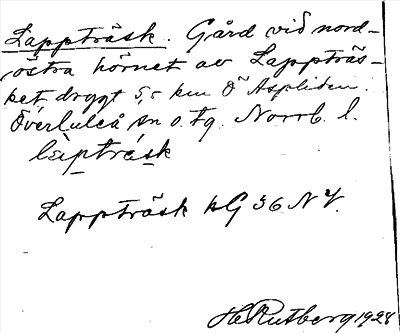 Lappträsk. Gård vid nord-
östra hörnet av Lappträs-
ket, drygt 5,5 km Ö Aspliden.
Överluleå sn o. tg. Norrb. l.
Lappträsk hG 36 NV.
H Rutberg 1928